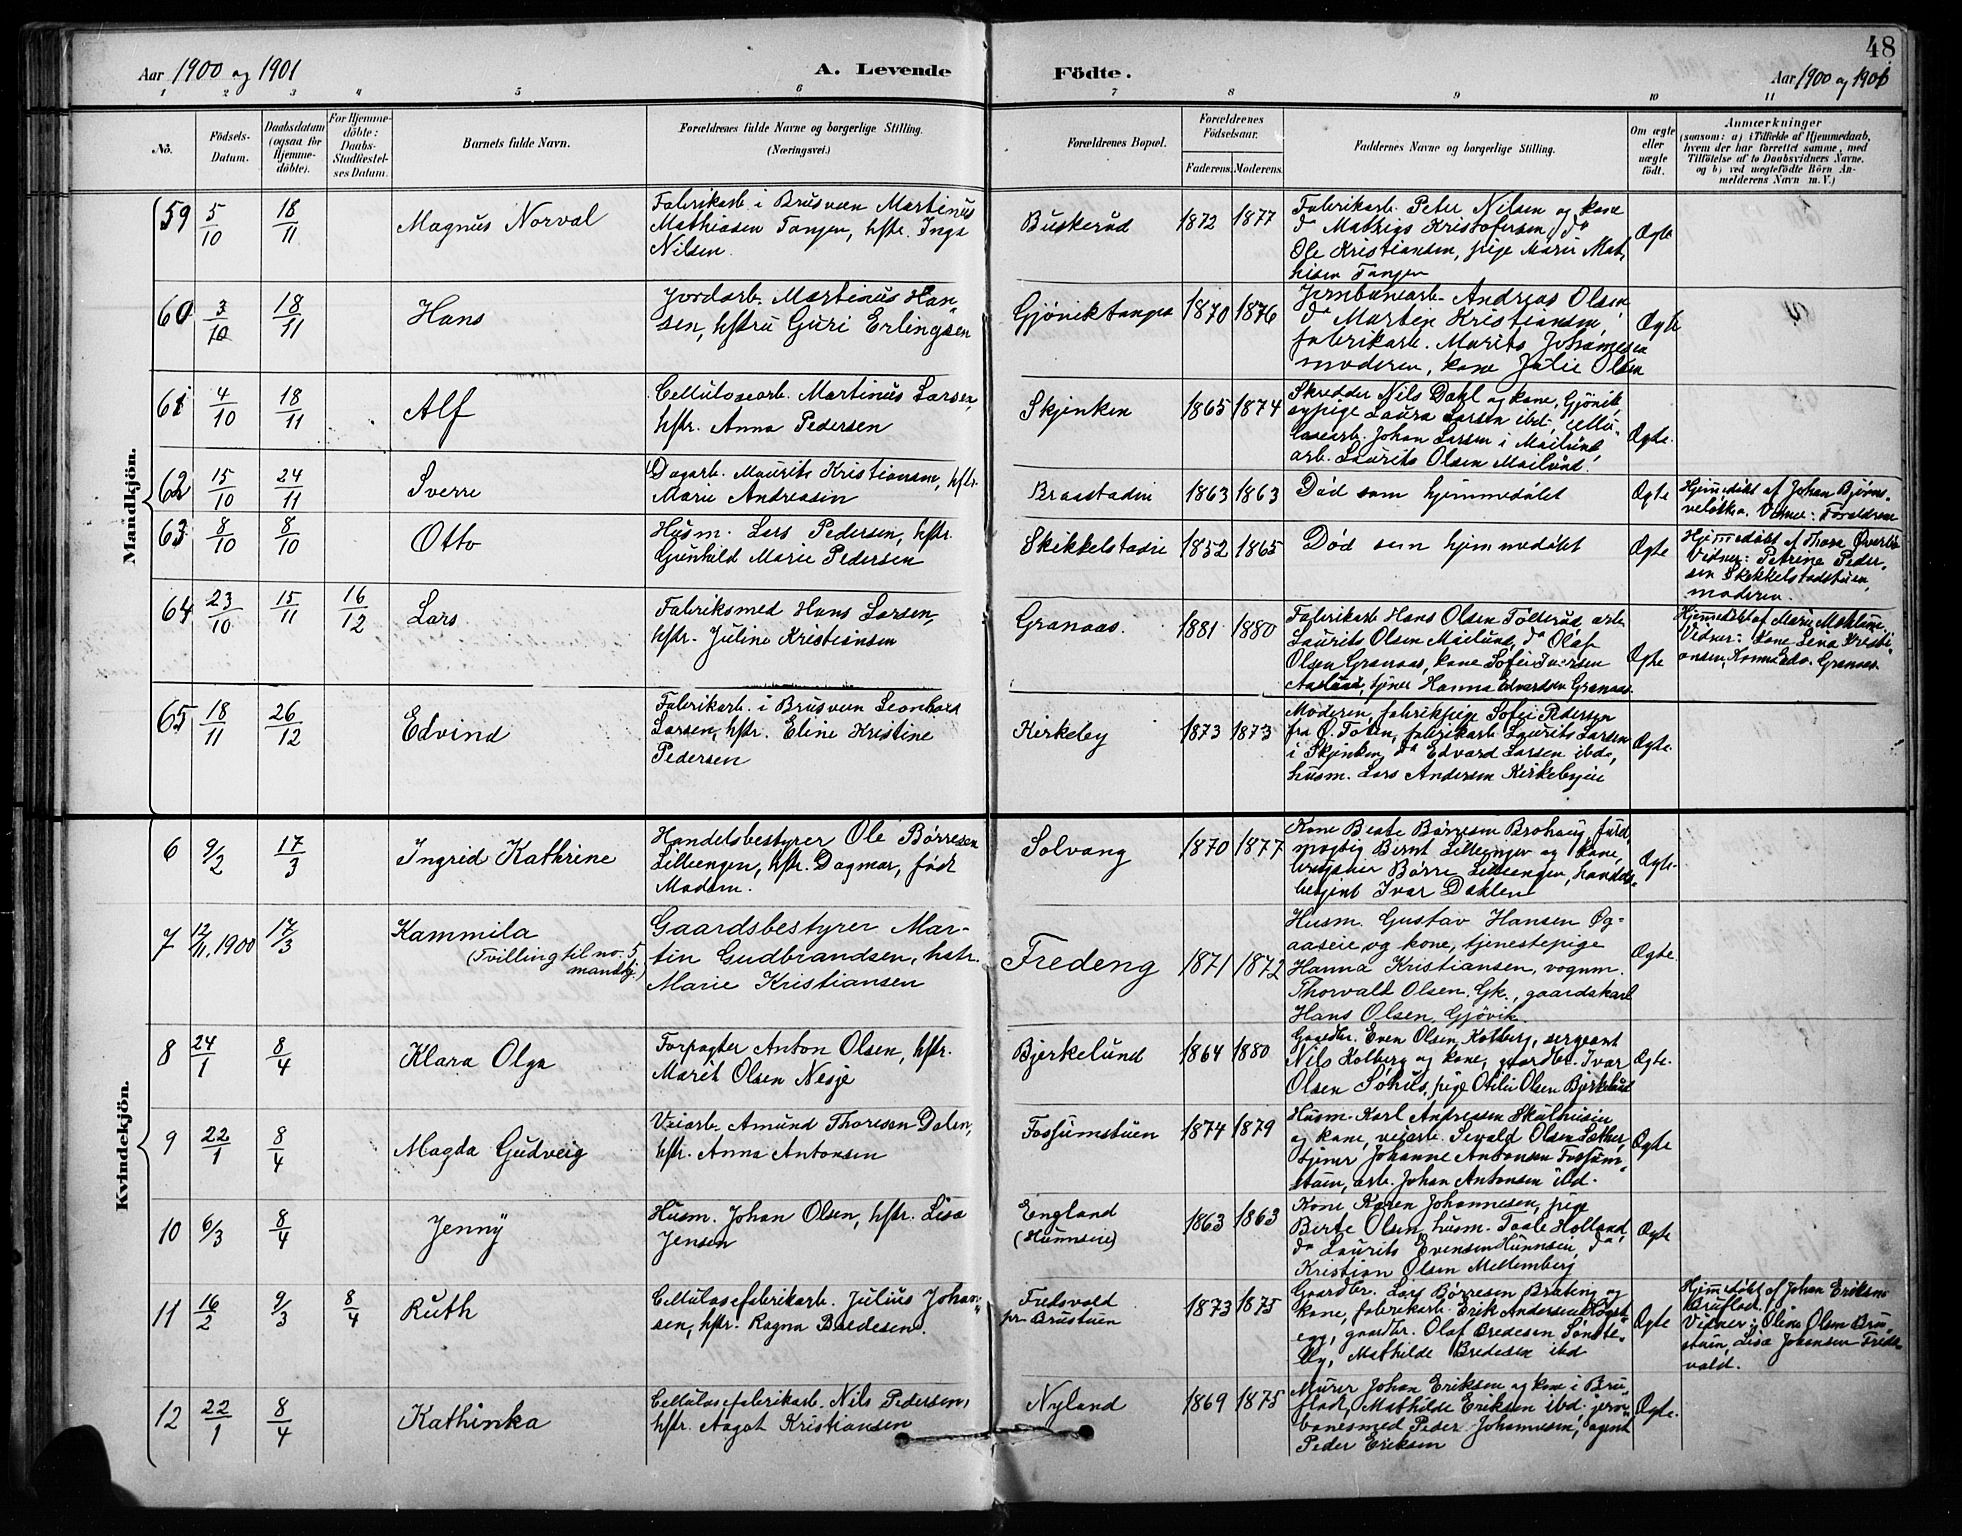 48
Aar 1900 og 1901
A. Levende Födte.
Aar 1900 og 1901
1 2 3 4 5 6 7 8 9 10 11
Nö.
Födsels-Datum.
Daabsdatum (ogsaa for Hjemme-döbte).
For Hjemme-döbte: Daabs-Stadfæstel-ses Datum.
Barnets fulde Navn.
Forældrenes fulde Navne og borgerlige Stilling.
(Næringsvei.)
Forældrenes Bopæl.
Forældrenes Födselsaar.
Faderens. Moderens.
Faddernes Navne og borgerlige Stilling.
Om ægte eller uægte födt.
Anmærkninger
(saasom: a) i Tilfælde af Hjemmedaab,
hvem der har forrettet samme, med
Tilföielse af to Daabsvidners Navne,
og b) ved uægtefödte Börn An-
melderens Navn m. V.)
Mandkjön.
59 5/10 18/11 Magnus Norval
Fabrikarb. i Brusveen Martinus
Mathiasen Tangen, hstr. Inga
Nilsen.
Buskerud 1872 1877
Fabrikarb. Peter Nilsen og kone
do Mathias Kristofersen, do
Ole Kristiansen, pige Marie Mat-
hisen Tangen
Ægte
60 3/10 18/11 Hans
Jordarb. Martinus Han-
sen, hustru Guri Erlingsen
Gjöviktangen 1870 1876
Jernbanearb. Andreas Olsen,
do Martin Kristiansen,
fabrikarb. Marits Johannesen
moderen, kone Julie Olsen
Ægte
61 4/10 18/11 Alf
Cellulosearb. Martinus Larsen,
hstr. Anna Pedersen
Skjenken 1865 1874
Skrædder Nils Dahl og kone, Gjövik,
sypige Laura Larsen ibd., cellu-
losearb. Johan Larsen i Mailund,
arb. Laurits Olsen Mailund.
Ægte.
62 15/10 24/11 Sverre
Dagarb. Maurits Kristiansen, hstr.
Marie Andreasen
Braastadeie 1863 1863
Död som hjemmedöbt
Ægte
Hjemmedöbt af Johan Björns-
Vidner: Forældrene
63 8/10 8/10 Otto
Husm. Lars Pedersen, hstr.
Gunhild Marie Pedersen
Skikkelstadeie 1852 1865
Död som hjemmedöbt
Ægte
Hjemmedöbt af Thora Överby
Vidner: Petrine Peder-
sen Skikkelstadstuen,
moderen
64 23/10 15/11 16/12 Lars
Fabriksmed Hans Larsen,
hstr. Juline Kristiansen
Granaas. 1881 1880
Fabrikarb. Hans Olsen Tollerud, arb.
Laurits Olsen Mailund, do Olaf
Olsen Granaas, kone Sofie Iversen
tjener Hanna Edvardsen Granaas
Ægte
Hjemmedöbt af Marie
Vidner: Kone Lina Kristi-
ansen, Hanna Edv. Granaas
65 18/11 26/12 Edvind
Fabrikarb. i Brusveen Leonhard
Larsen, hstr. Eline Kristine
Pedersen
Kirkeby 1873 1873
Moderen, fabrikpige Sofie Pedersen
fra Ö. Toten, fabrikarb. Laurits Larsen
i Skjenken, do Edvard Larsen ibd.,
husm. Lars Andersen Kirkebyeie
Ægte.
Kvindekjön.
6 9/2 17/3 Ingrid Kathrine
Handelsbestyrer Ole Börresen
Lilleengen, hstr. Dagmar, födt
Madsen.
Solvang 1870 1877
Kone Beate Börresen Brohaug, fuld-
mægtig Bernt Lilleengen og kone,
Börre Lilleengen, handels-
betjent Ivar Dahlen
Ægte.
7 12/11.1900 17/3 Kammila
(Tvilling til no. 5,
mandkj.)
Gaardsbestyrer Mar-
tin Gudbrandsen, hstr.
Marie Kristiansen
Fredeng 1871 1872
Husm. Gustav Hansen Øg-
aaseie og kone, tjenestepige
Hanna Kristiansen, vognm.
Thorvald Olsen, Gk., gaardskarl
Hans Olsen, Gjövik
Ægte.
8 24/1 8/4 Klara Olga
Forpagter Anton Olsen, hstr.
Marit Olsen Nesje
Bjerkelund 1864 1880
Gaardbr. Even Olsen Kolberg, sergeant
Nils Kolberg og kone, gaardbr. Ivar
Olsen pige Otilie Olsen Bjerkelund
Ægte.
9 22/1 8/4 Magda Gudveig
Veiarb. Amund Thoresen Dalen,
hstr. Anna Antonsen
Fossumstuen 1874 1879
Husm. Karl Andreasen Skulhuseie
og kone, veiarb. Sevald Olsen Sæther,
tjener Johanne Antonsen Fossum-
stuen, arb. Johan Antonsen ibd.
Ægte
10 6/3 8/4 Jenny
Husm. Johan Olsen, hstr. Lisa
Jensen
England
(Hunnseie)
1863 1863
Kone Karen Johannesen, pige
Birte Olsen, husm. Taale Holland,
do Laurits Evensen Hunnseie, do
Kristian Olsen Mellemberg
Ægte
11 16/2 9/3 8/4 Ruth
Cellulosefabrikarb. Julius Johan-
sen, hstr. Ragna Bredesen.
Fredsvold
pr. Brustuen
1873 1875
Gaardbr. Lars Börresen Braten og
kone, fabrikarb. Erik Andersen
egg, gaardbr. Olaf Bredesen Sönste-
by, Mathilde Bredesen ibd
Ægte
Hjemmedöbt af Johan Eriksen
Bruflod.
Vidner: Oline Olsen Bru-
stuen, Lisa Johansen Freds-
vold.
12 22/1 8/4 Kathinka
Cellulosefabrikarb. Nils Pedersen,
hstr. Aagot Kristiansen
Nyland 1869 1875
Murer Johan Eriksen og kone i Bru-
flod, Mathilde Eriksen ibd. jern-
banesmed Peder Johannesen, agent
Peder Eriksen
Ægte.